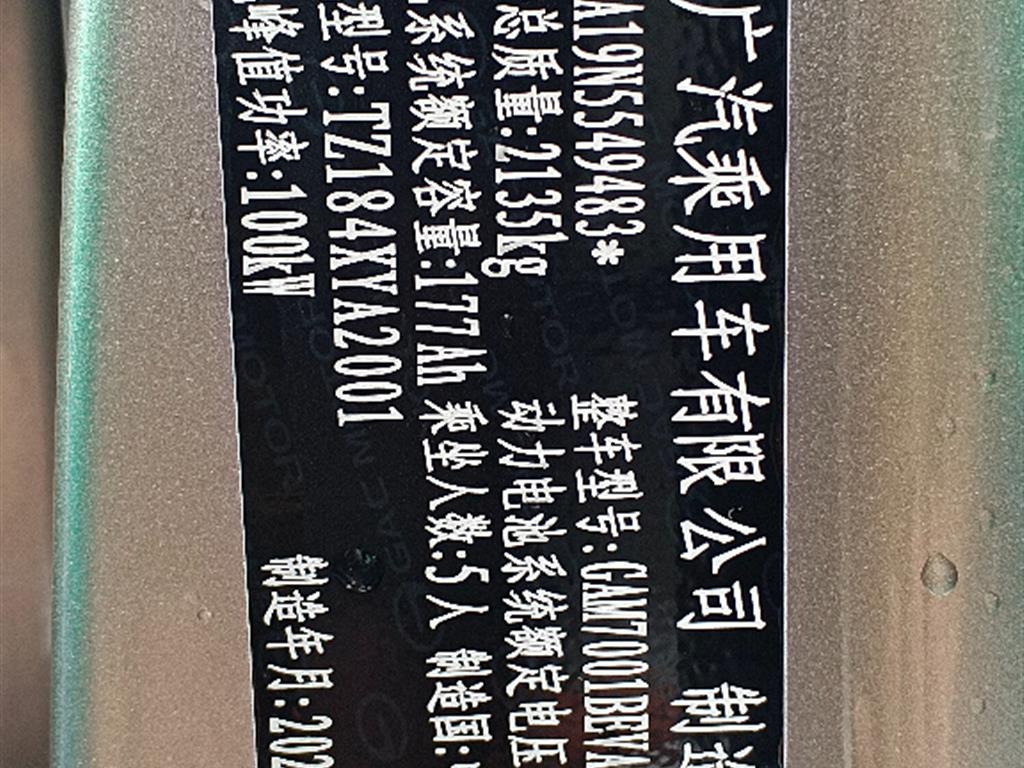 广汽乘用车有限公司 制造
A19N5549483* 整车型号:GAM7001BEVA
总质量:2135kg 动力电池系统额定电压
系统额定容量:177Ah 乘坐人数:5人 制造国:
型号:TZ184XYA2001
峰值功率:100kW 制造年月:202